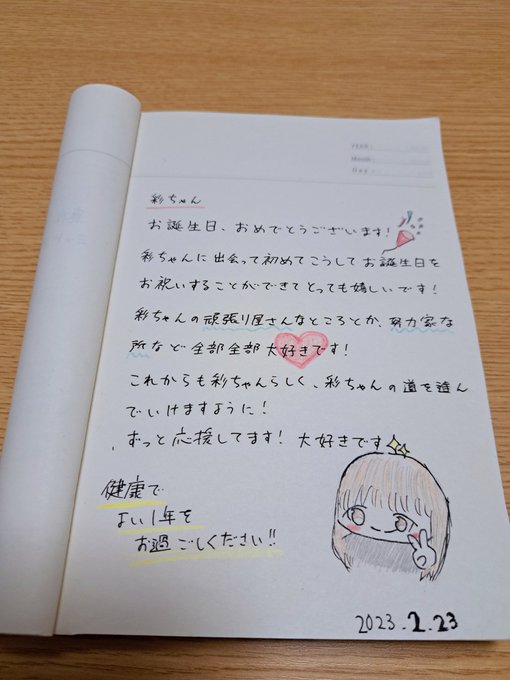 Year:
Month:
Day:
彩ちゃん
お誕生日、おめでとうございます!
彩ちゃんに出会って初めてこうしてお誕生日を
お祝いすることができてとっても嬉しいです!
彩ちゃんの頑張り屋さんなところとか、努力家な
所など全部全部大好きです!
これからも彩ちゃんらしく、彩ちゃんの道を進ん
でいけますように!
ずっと応援してます! 大好きです
健康で
よい1年を
お過ごしください!!
2023.2.23